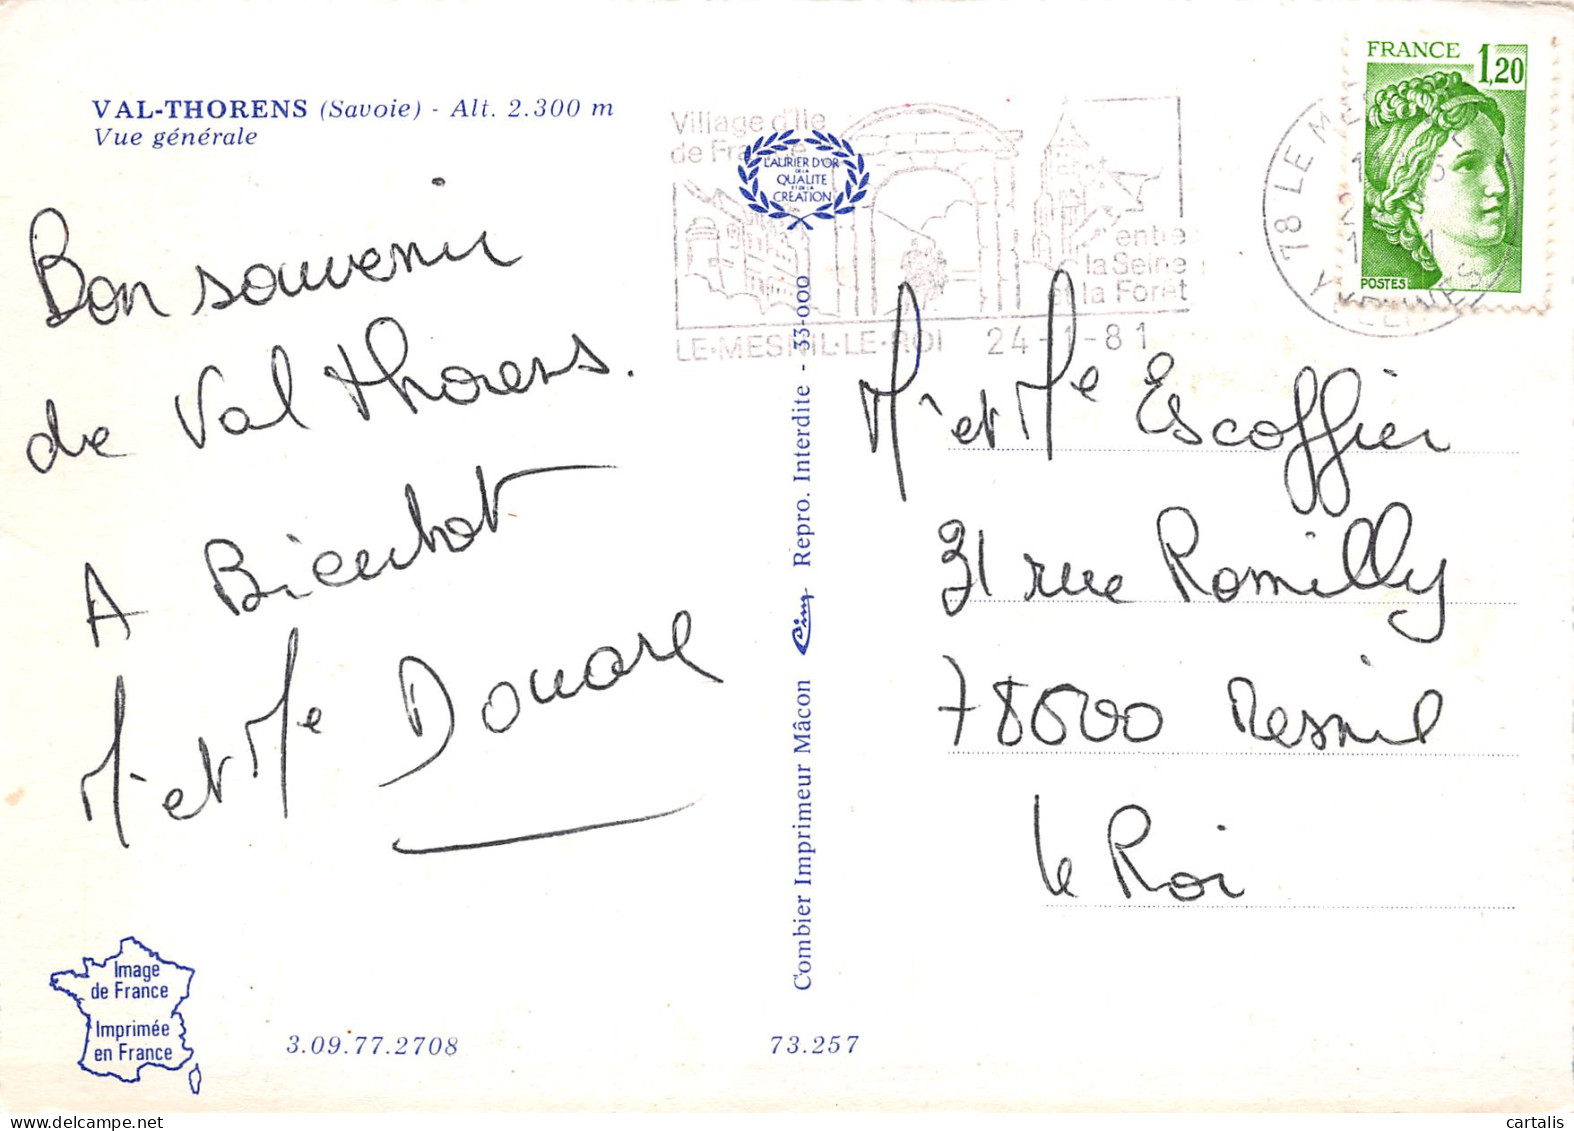 VAL-THORENS (Savoie) - Alt. 2.300 m
Vue générale
Bon souvenir
de Val Thorens.
A Bientot
Mr et Me Douare
Image
de France
Imprimée
en France
3.09.77.2708
73.257
Combier Imprimeur Mâcon Cim Repro. Interdite - 33-000
L'AURIER D'OR
DE LA
QUALITE
ET DE LA
CREATION
Village d'Ile
de France
entre
la Seine
et la Forêt
LE-MESNIL-LE-ROI 24-1-81
78 LE ME
YVELINES
FRANCE 1,20
POSTES
Mr et Me Escoffier
31 rue Romilly
78600 Mesnil
le Roi
cartalis
www.delcampe.net